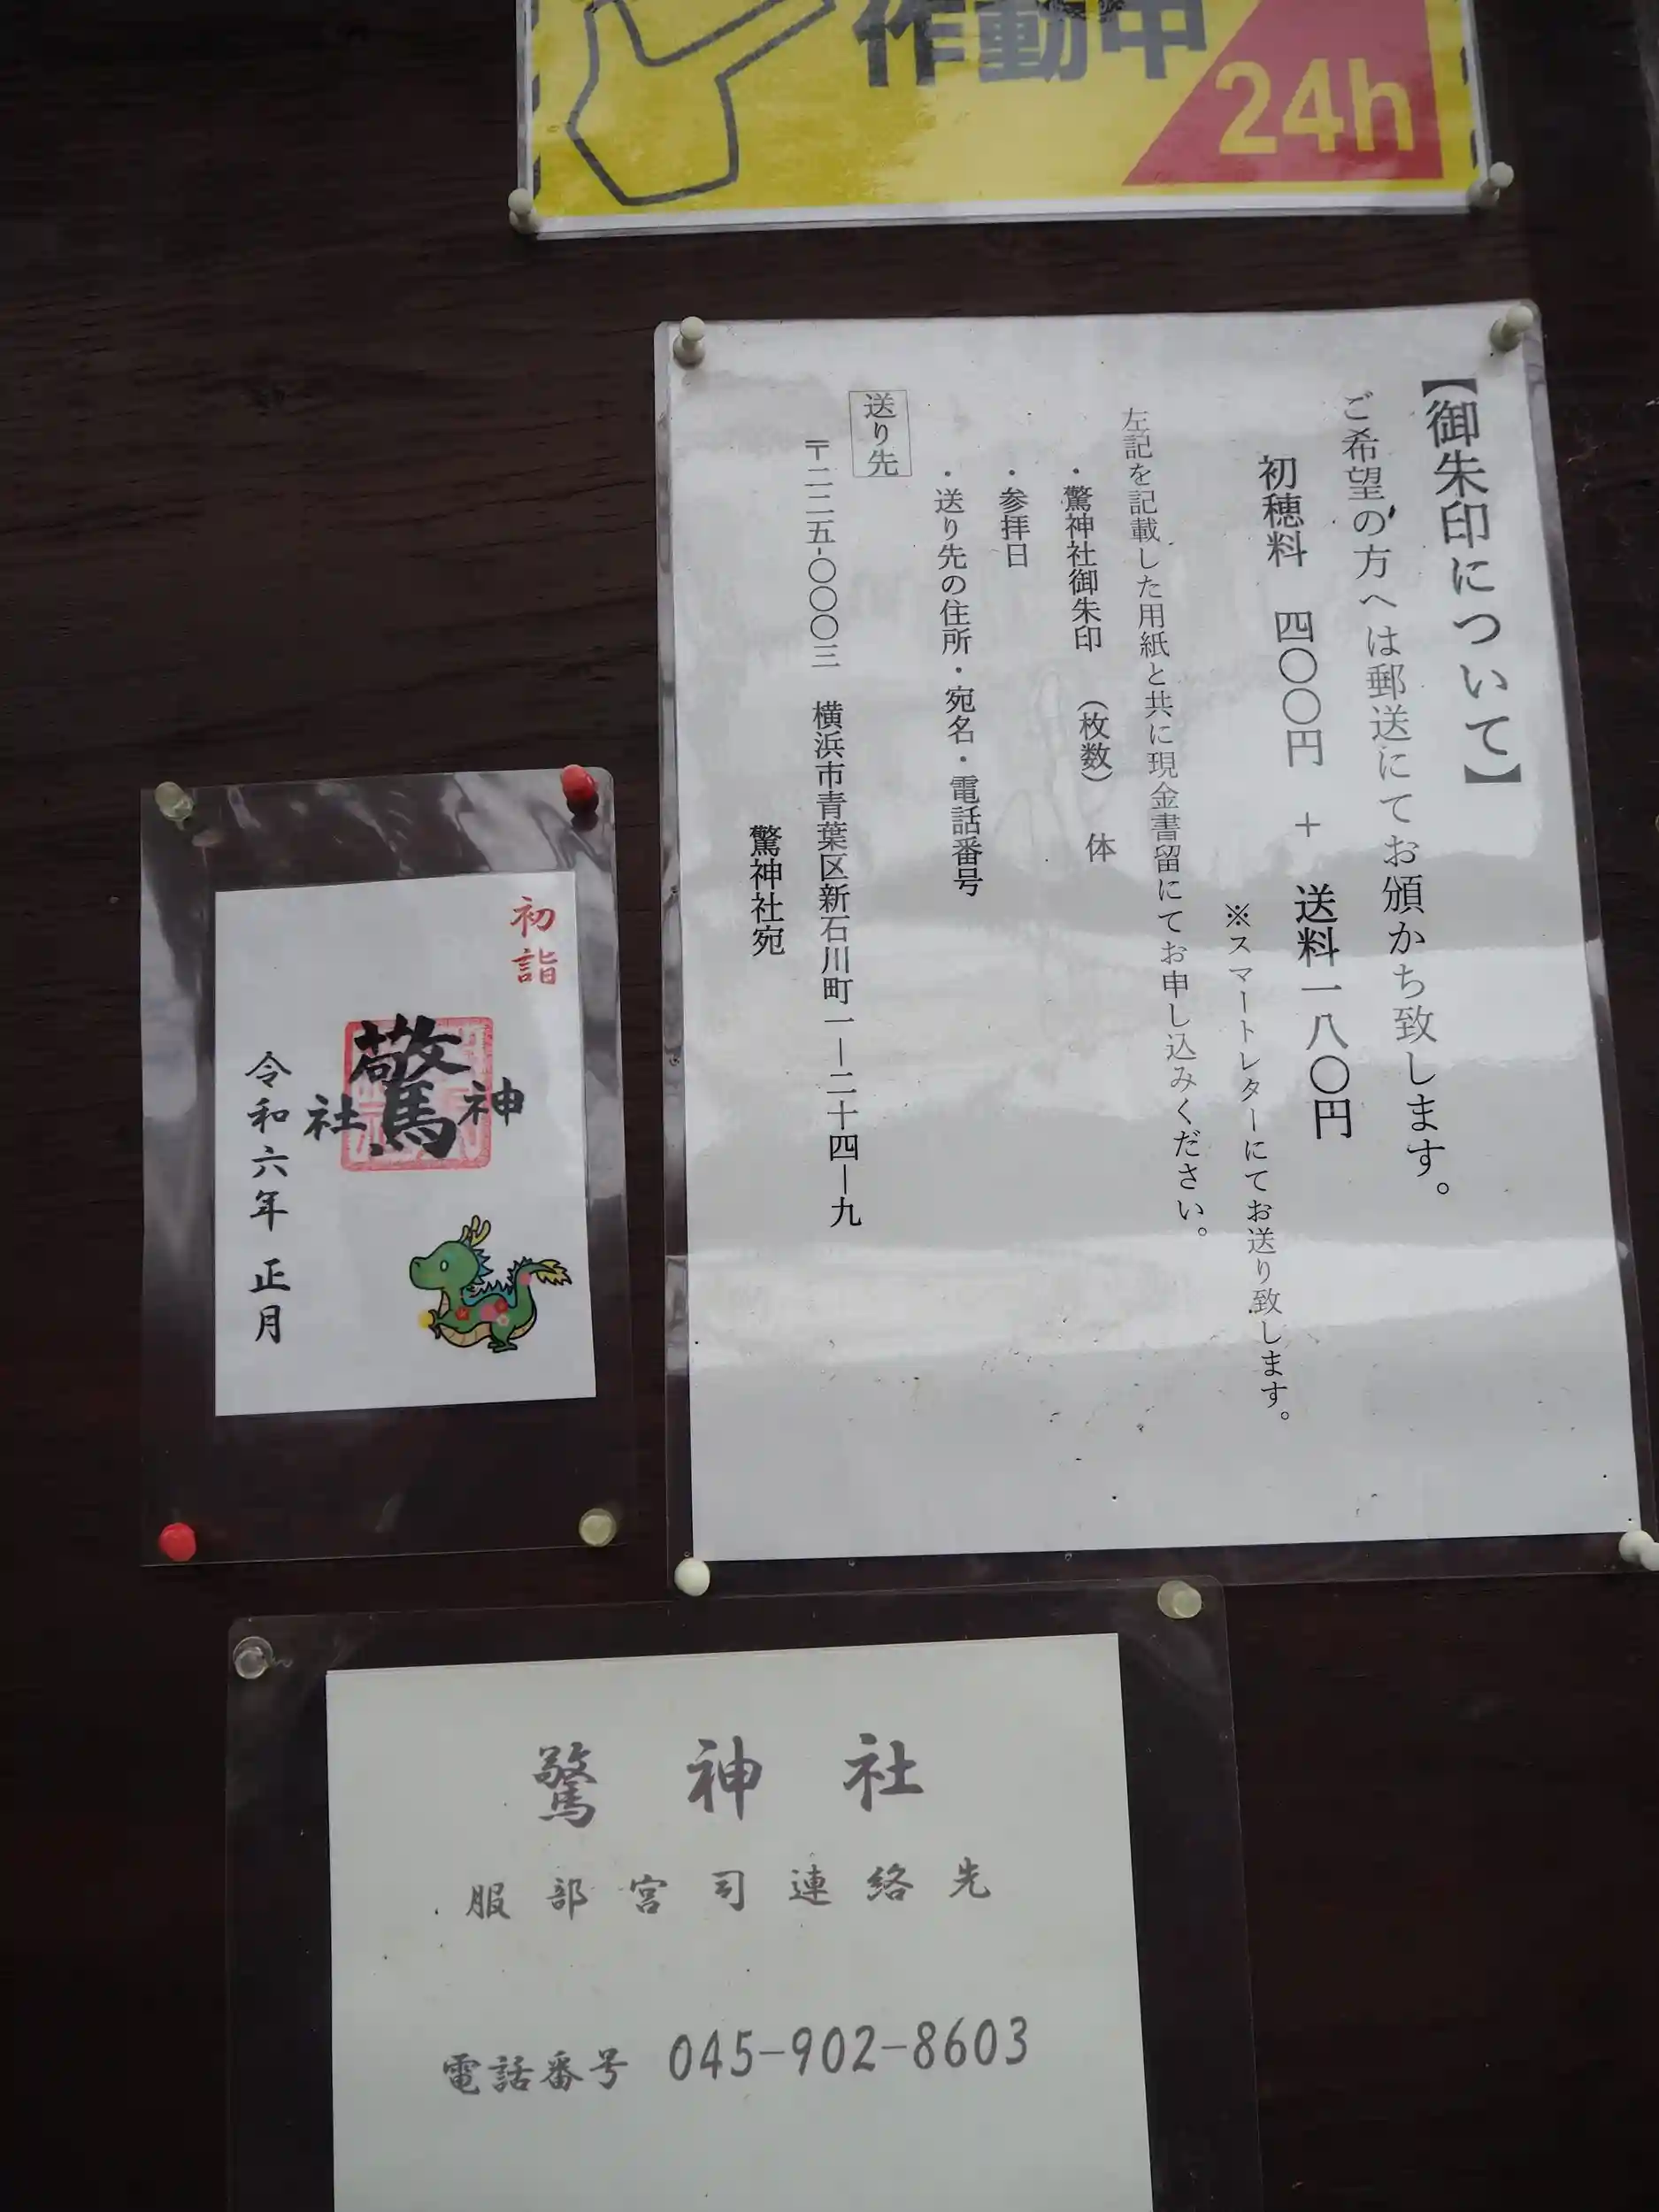 作動中
24h
【御朱印について】
ご希望の方へは郵送にてお頒かち致します。
初穂料 四〇〇円 + 送料一八〇円
※スマートレターにてお送り致します。
左記を記載した用紙と共に現金書留にてお申し込みください。
・驚神社御朱印 (枚数) 体
・参拝日
・送り先の住所・宛名・電話番号
送り先
〒二二五-〇〇〇三 横浜市青葉区新石川町一―二十四―九
驚神社宛
初詣
驚神社
令和六年 正月
驚神社
服部宮司連絡先
電話番号 045-902-8603